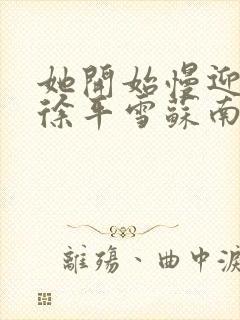 她開始慢迎
徐平雪蘇南
離殤、曲中淚